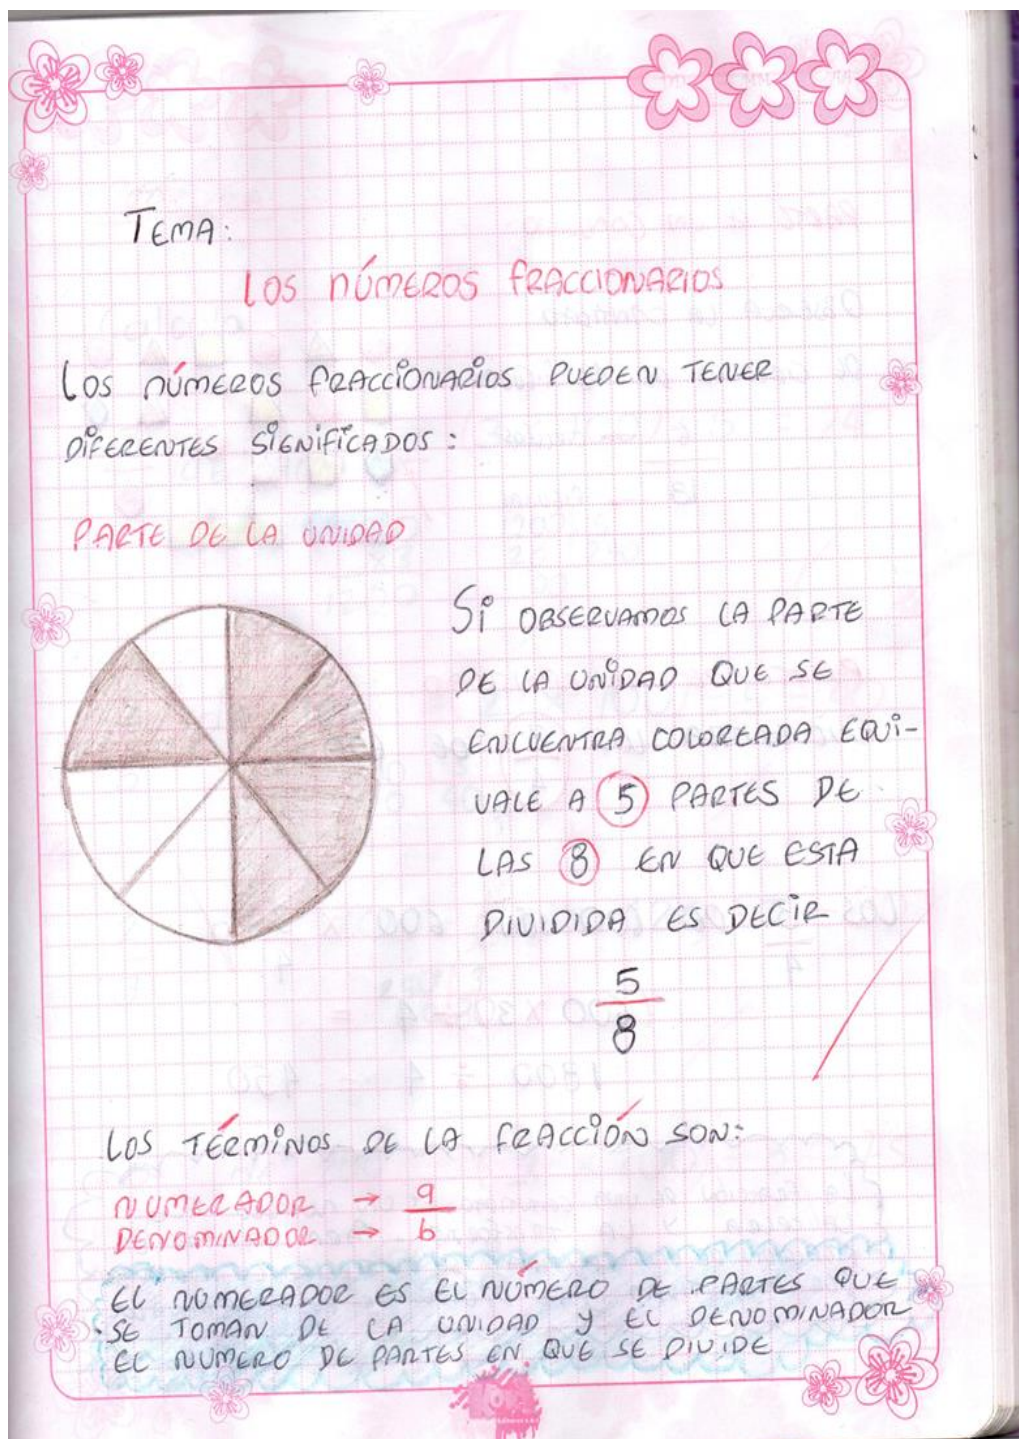 TEMA:
LOS NÚMEROS FRACCIONARIOS
LOS NÚMEROS FRACCIONARIOS PUEDEN TENER
DIFERENTES SIGNIFICADOS:
PARTE DE LA UNIDAD
Si OBSERVAMOS LA PARTE
DE LA UNIDAD QUE SE
ENCUENTRA COLOREADA EQUI-
VALE A 5 PARTES DE
LAS 8 EN QUE ESTA
DIVIDIDA ES DECIR
5
8
LOS TÉRMINOS DE LA FRACCIÓN SON:
NUMERADOR → a
DENOMINADOR → b
EL NUMERADOR ES EL NÚMERO DE PARTES QUE
SE TOMAN DE LA UNIDAD Y EL DENOMINADOR
EL NUMERO DE PARTES EN QUE SE DIVIDE